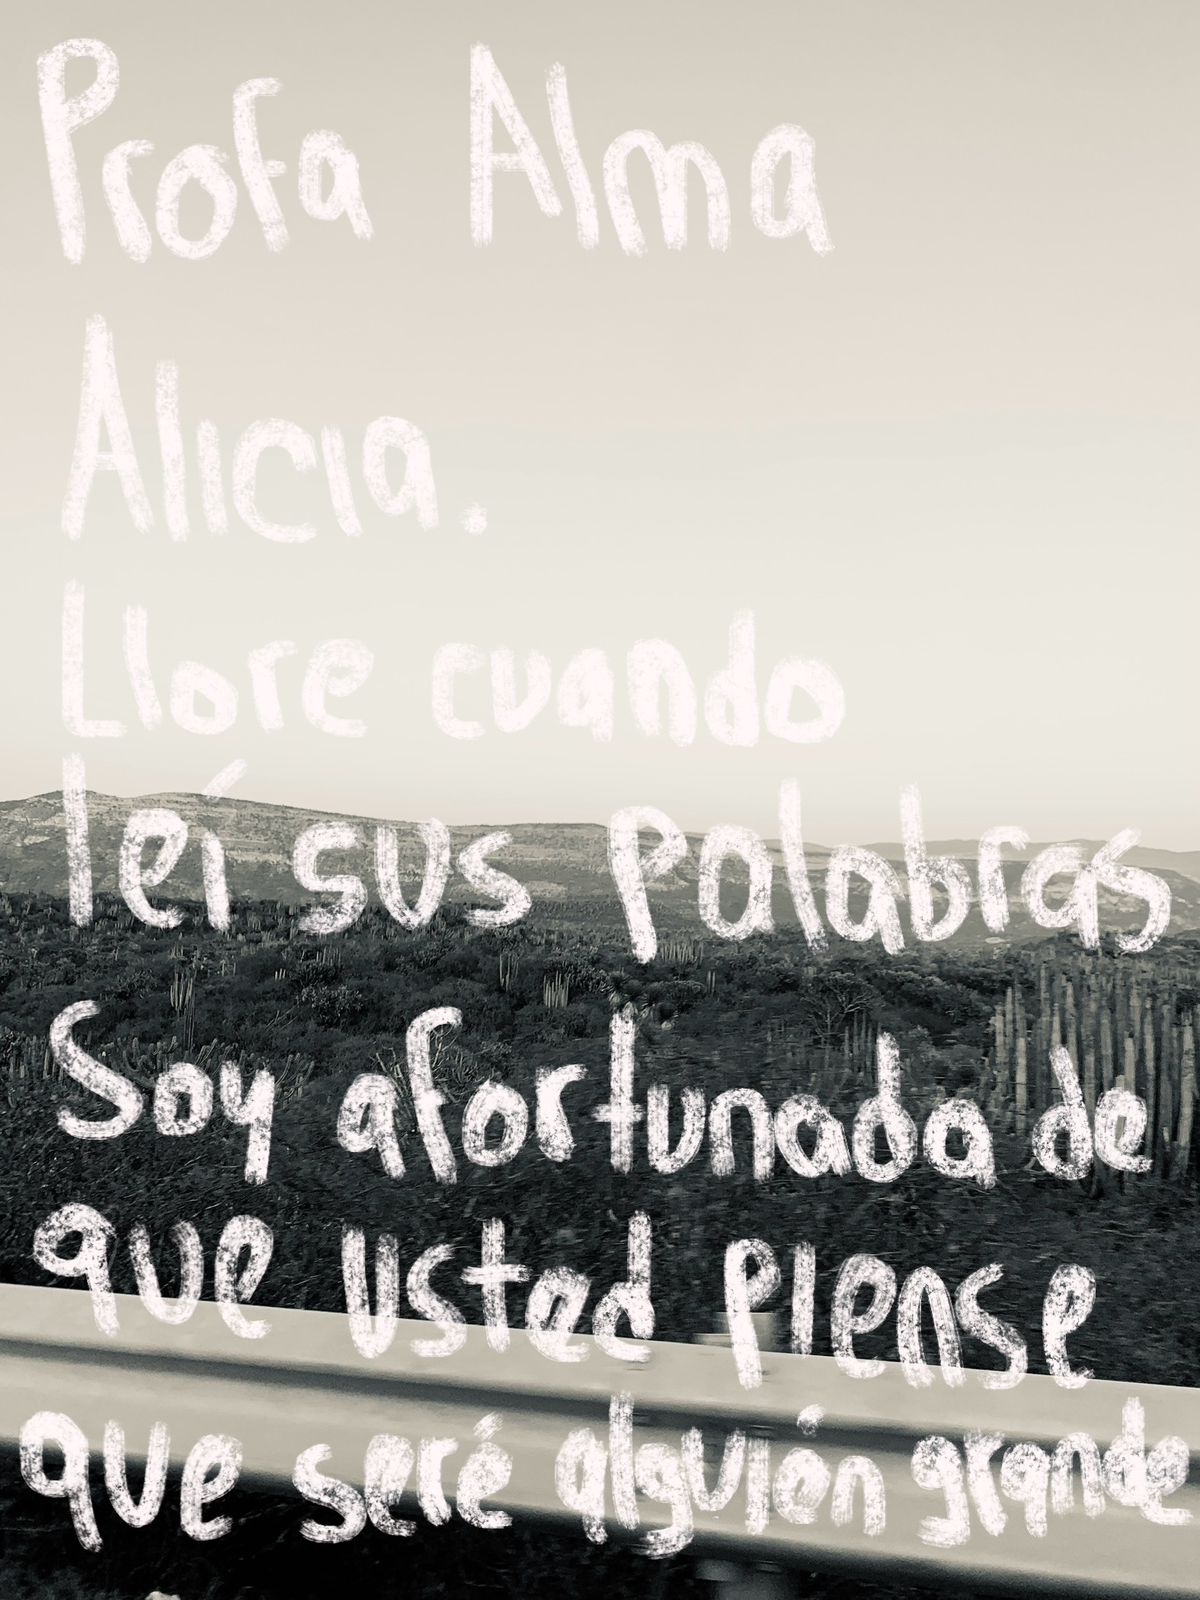 Profa Alma
Alicia.
Llore cuando
leí sus palabras
Soy afortunada de
que usted piense
que seré alguien grande